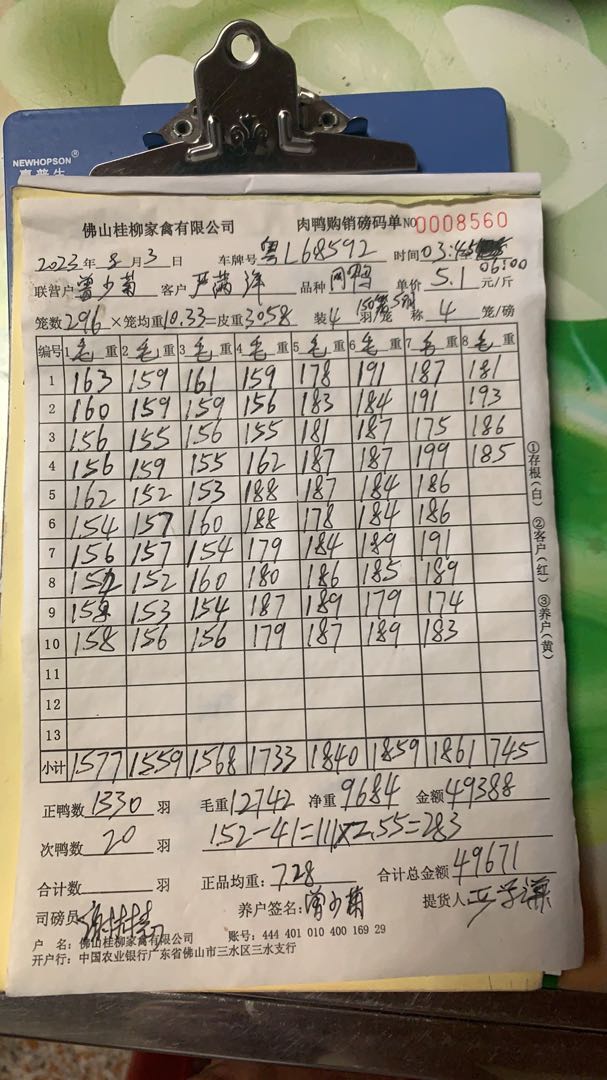 NEWHOPSON®
佛山桂柳家禽有限公司 肉鸭购销磅码单 NO 0008560
2023年8月3日 车牌号 粤L68592 时间 03:45
06:00
联营户 曾少菊 客户 严满洋 品种 网鸭 单价 5.1 元/斤
笼数 296 ×笼均重 10.33 =皮重 3058 装 4 羽/笼 称 4 笼/磅
编号 1 毛重 2 毛重 3 毛重 4 毛重 5 毛重 6 毛重 7 毛重 8 毛重
1 163 159 161 159 178 191 187 181
2 160 159 159 156 183 184 191 193
3 156 155 156 155 181 187 175 186
4 156 159 155 162 187 187 199 185
5 162 152 153 188 187 184 186
6 154 157 160 188 178 184 186
7 156 157 154 179 184 189 191
8 152 152 160 180 186 185 189
9 153 154 187 189 179 174
10 158 156 156 179 187 189 183
11
12
13
小计 1577 1559 1568 1733 1840 1859 1861 745
①存根(白) ②客户(红) ③养户(黄)
正鸭数 1330 羽 毛重 12742 净重 9684 金额 49388
次鸭数 20 羽 152-41=111×2.55=283
合计数 羽 正品均重: 7.28 合计总金额 49671
司磅员 养户签名: 曾少菊 提货人
户 名: 佛山桂柳家禽有限公司 账号: 444 401 010 400 169 29
开户行: 中国农业银行广东省佛山市三水区三水支行